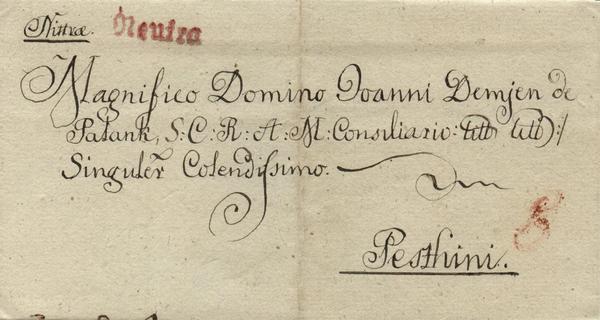 Nittræ. Neutra
Magnifico Domino Joanni Demjen de
Patank, S: C: R: A: M: Consiliario: titt titt):/
Singulěr Colendissimo.
Pesthini.